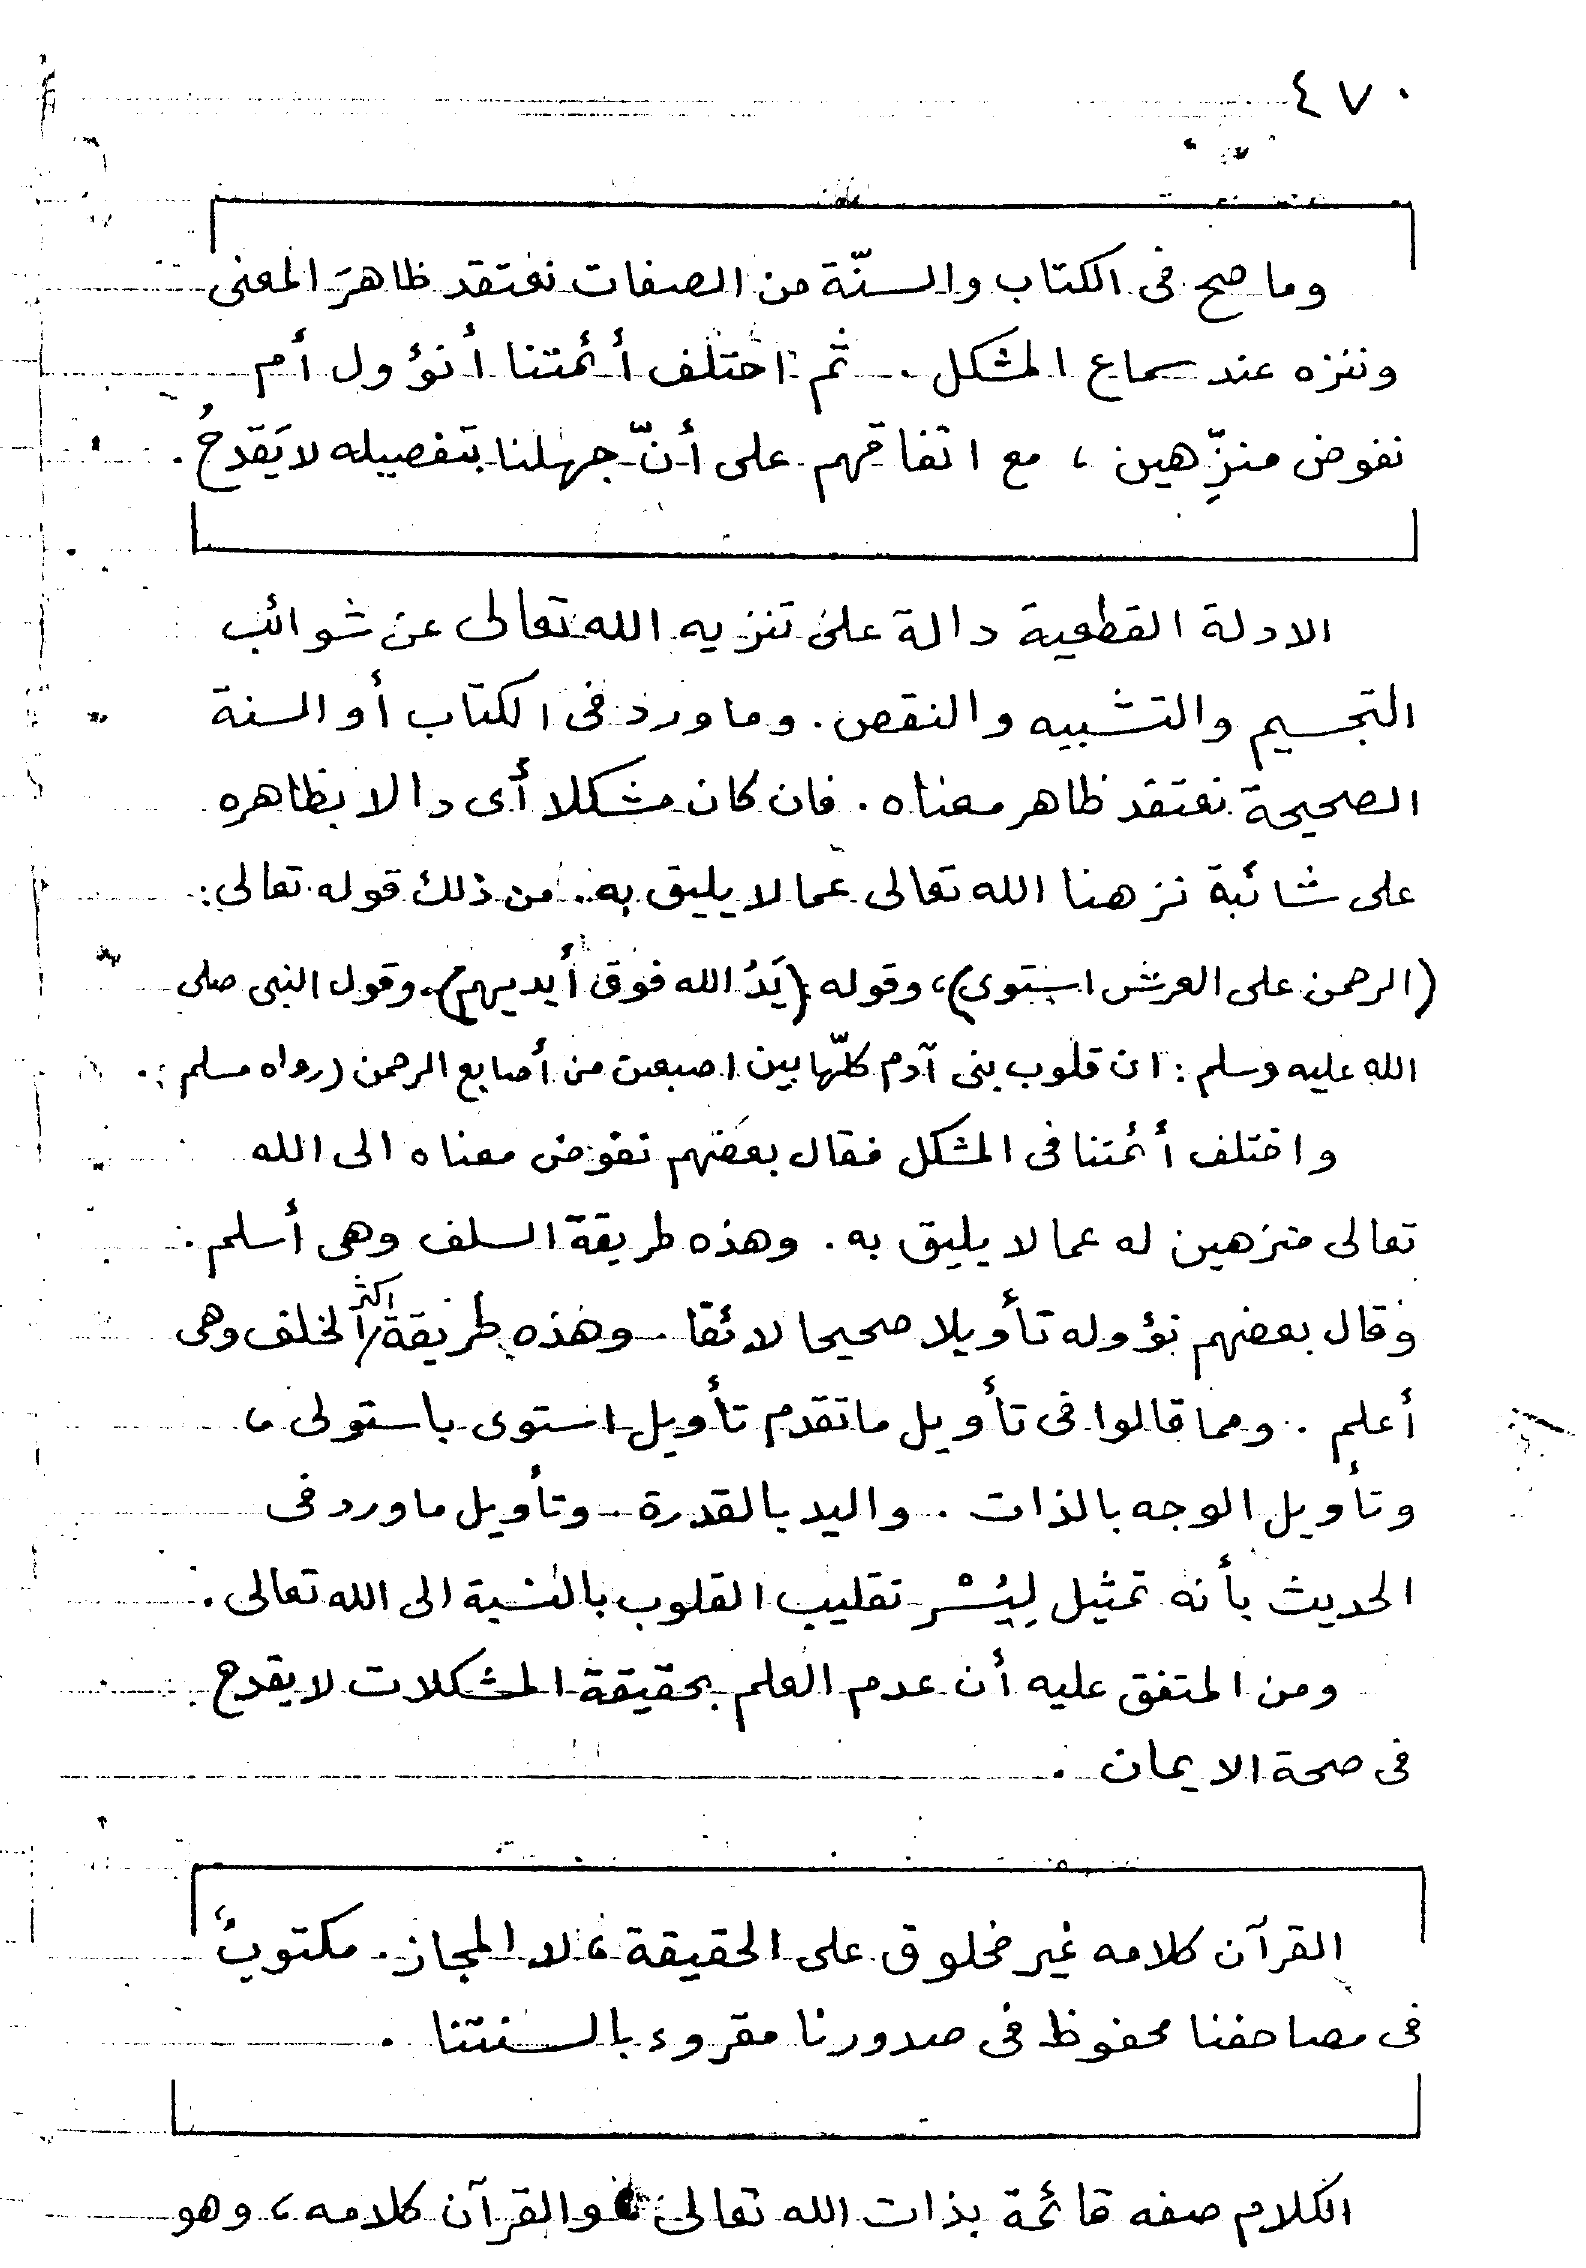 ٤٧٠
وما صح فى الكتاب والسنّة من الصفات نعتقد ظاهرَ المعنى
وننزه عند سماع المشكل . ثم اختلف أئمتنا أنؤول أم
نفوض منزِّهين ، مع اتفاقهم على أنّ جهلنا بتفصيله لا يَقدحُ .
الادلة القطعية دالة على تنزيه الله تعالى عن شوائب
التجسيم والتشبيه والنقص . وما ورد فى الكتاب أو السنة
الصحيحة نعتقد ظاهر معناه . فان كان مشكلا أى دالا بظاهره
على شائبة نزهنا الله تعالى عما لا يليق به . من ذلك قوله تعالى :
(الرحمن على العرش استوى) ، وقوله (يَدُ الله فوق أيديهم) . وقول النبى صلى
الله عليه وسلم : ان قلوب بنى آدم كلّها بين اصبعين من أصابع الرحمن (رواه مسلم) .
واختلف أئمتنا فى المشكل فقال بعضهم نفوض معناه الى الله
تعالى منزهين له عما لا يليق به . وهذه طريقة السلف وهى أسلم .
وقال بعضهم نؤوله تأويلا صحيحا لائقا . وهذه طريقة اكثر الخلف وهى
أعلم . ومما قالوا فى تأويل ما تقدم تأويل استوى باستولى ،
وتأويل الوجه بالذات . واليد بالقدرة . وتأويل ما ورد فى
الحديث بأنه تمثيل لِيُسْر تقليب القلوب بالنسبة الى الله تعالى .
ومن المتفق عليه أن عدم العلم بحقيقة المشكلات لا يقدح
فى صحة الايمان .
القرآن كلامه غير مخلوق على الحقيقة ، لا المجاز . مكتوبٌ
فى مصاحفنا محفوظ فى صدورنا مقروء بالسنتنا .
الكلام صفه قائمة بذات الله تعالى والقرآن كلامه ، وهو